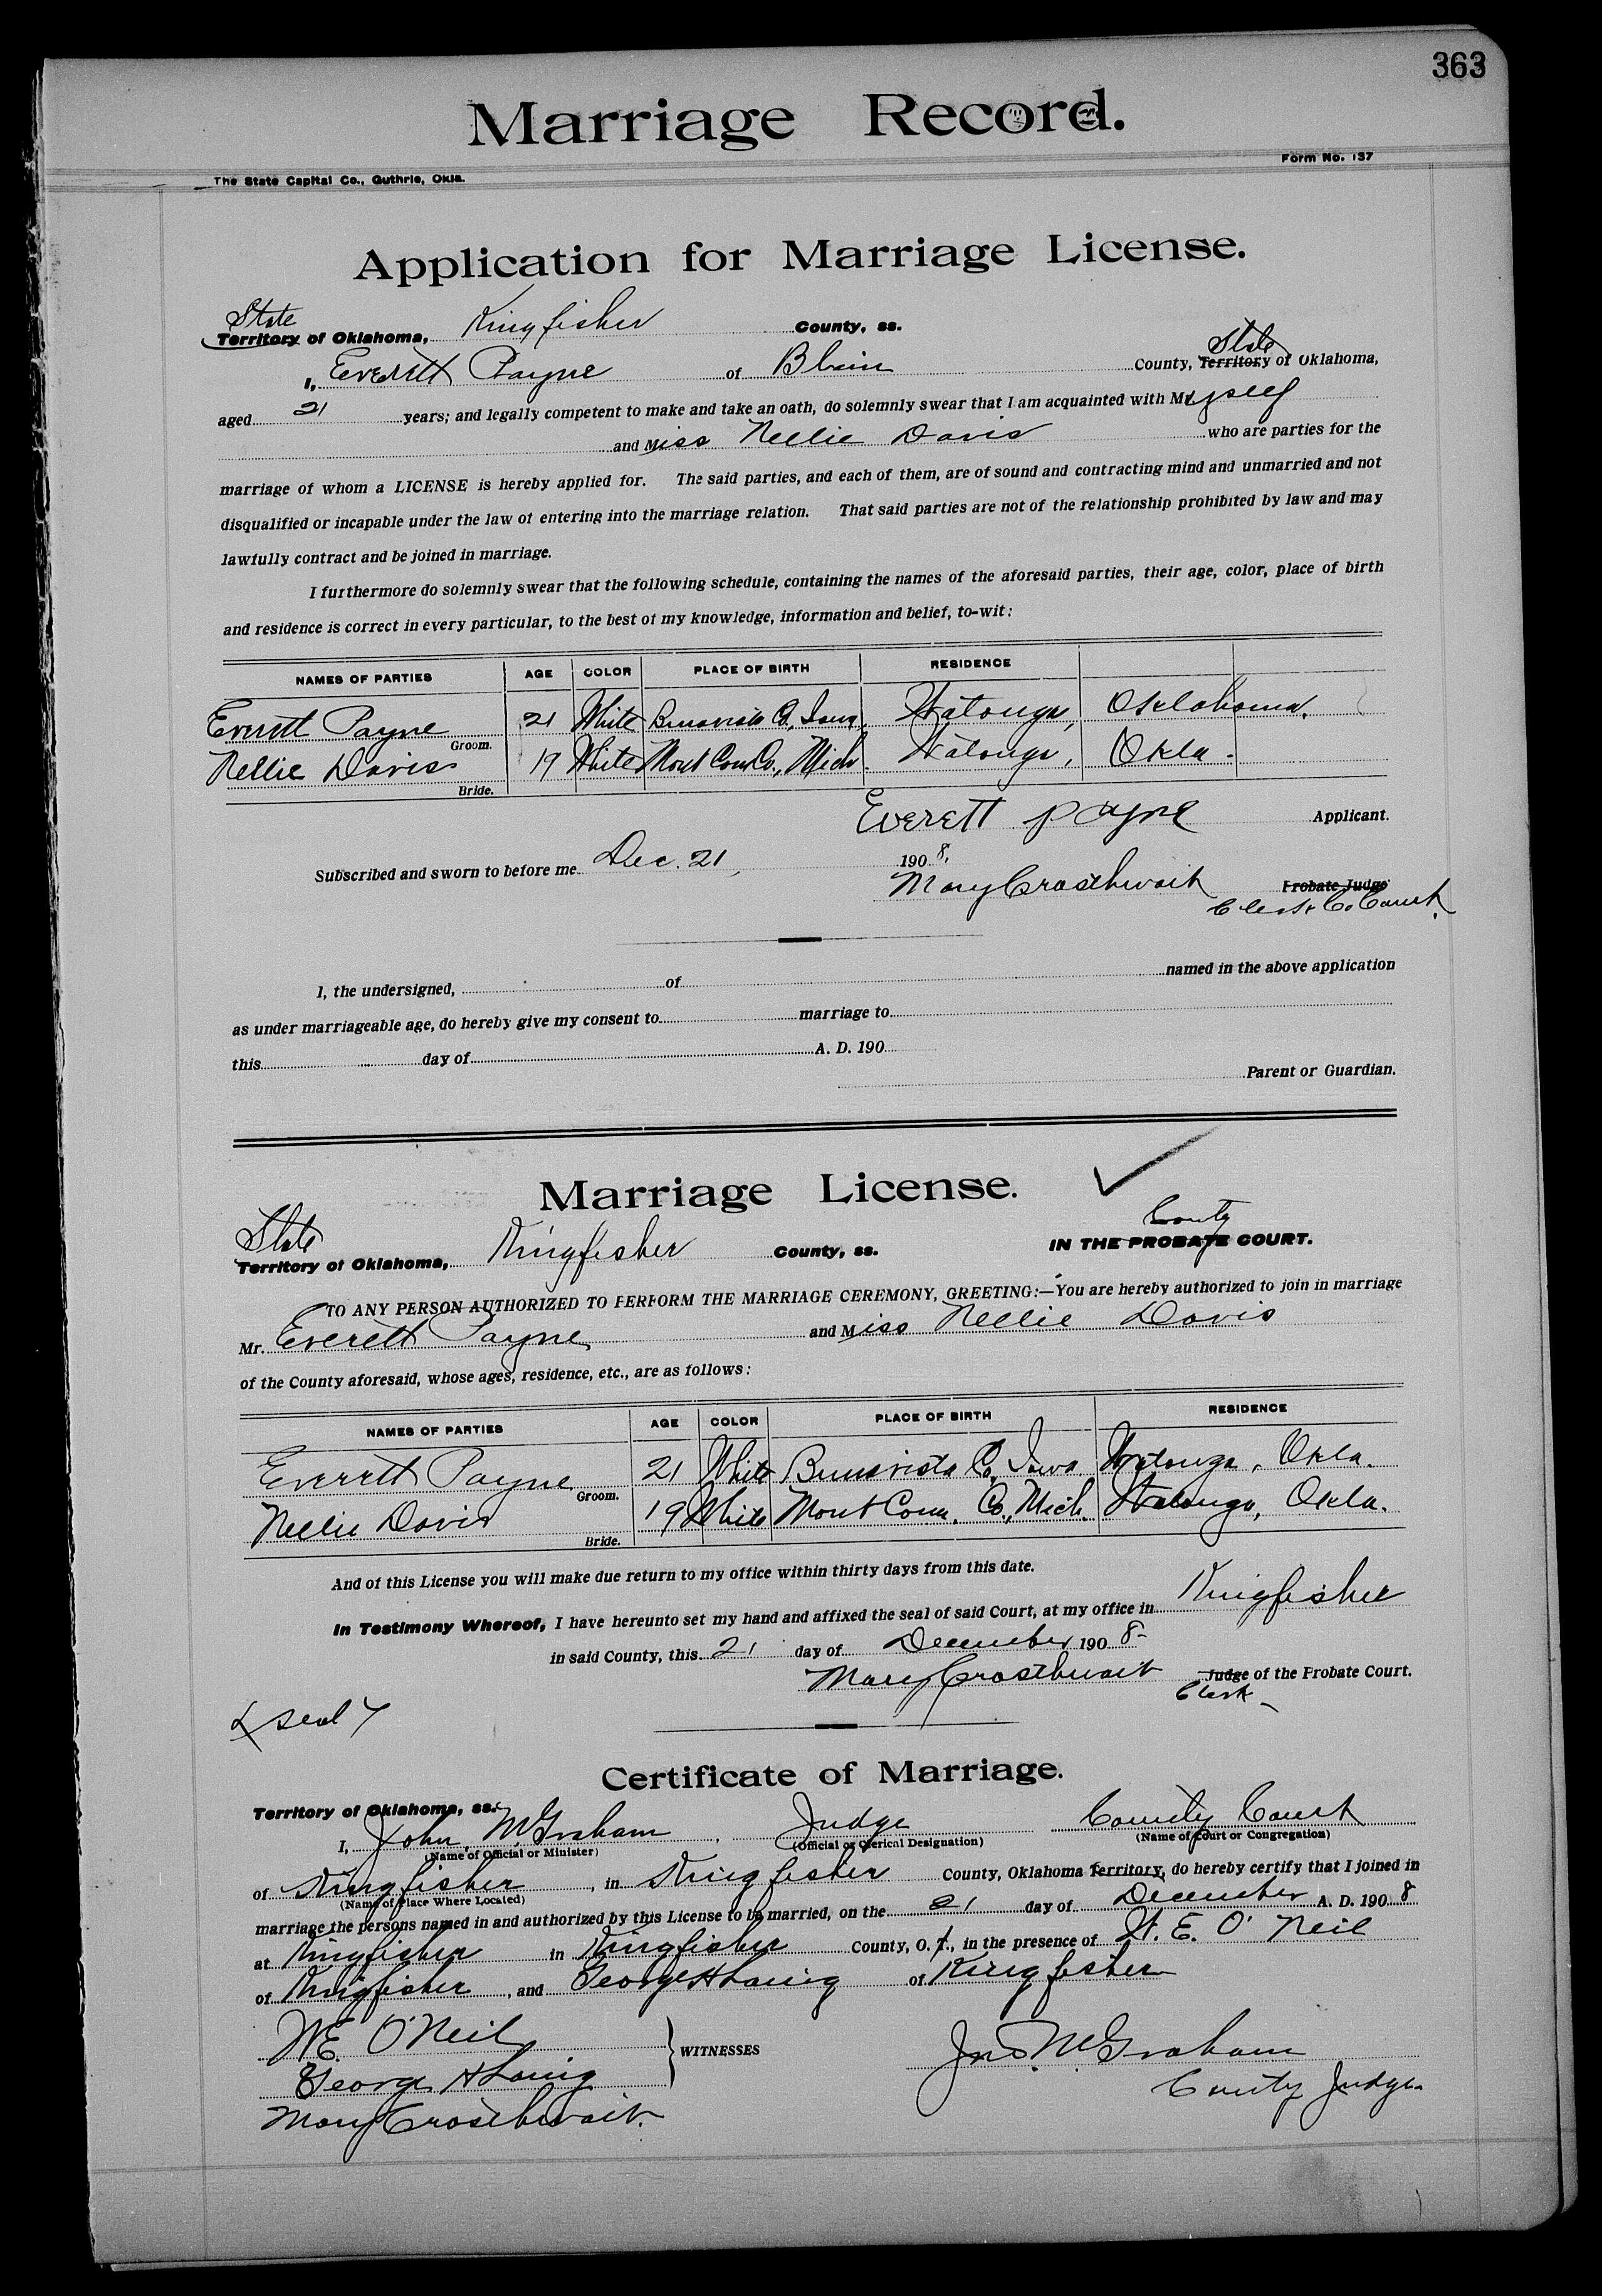 363
Marriage Record.
Form No. 137
The State Capital Co., Guthrie, Okla.
Application for Marriage License.
State
Territory of Oklahoma, Kingfisher County, ss.
State
I, Everett Payne of Blain County, Territory of Oklahoma,
aged 21 years; and legally competent to make and take an oath, do solemnly swear that I am acquainted with Myself
and Miss Nellie Davis who are parties for the
marriage of whom a LICENSE is hereby applied for. The said parties, and each of them, are of sound and contracting mind and unmarried and not
disqualified or incapable under the law of entering into the marriage relation. That said parties are not of the relationship prohibited by law and may
lawfully contract and be joined in marriage.
I furthermore do solemnly swear that the following schedule, containing the names of the aforesaid parties, their age, color, place of birth
and residence is correct in every particular, to the best of my knowledge, information and belief, to-wit:
NAMES OF PARTIES AGE COLOR PLACE OF BIRTH RESIDENCE
Everett Payne 21 White Bunavista Co, Iowa. Watonga, Oklahoma.
Groom.
Nellie Davis 19 White Mont Com Co., Mich. Watonga, Okla.
Bride.
Everett Payne Applicant.
Subscribed and sworn to before me Dec. 21, 1908.
Mary Crosthwait Probate Judge
Clerk Co. Court.
I, the undersigned, of named in the above application
as under marriageable age, do hereby give my consent to marriage to
this day of A. D. 190
Parent or Guardian.
Marriage License.
State
County
Territory of Oklahoma, Kingfisher County, ss. IN THE PROBATE COURT.
TO ANY PERSON AUTHORIZED TO PERFORM THE MARRIAGE CEREMONY, GREETING:—You are hereby authorized to join in marriage
Mr. Everett Payne and Miss Nellie Davis
of the County aforesaid, whose ages, residence, etc., are as follows:
NAMES OF PARTIES AGE COLOR PLACE OF BIRTH RESIDENCE
Everett Payne 21 White Bunavista Co, Iowa Watonga, Okla.
Groom.
Nellie Davis 19 White Mont Com. Co., Mich. Watonga, Okla.
Bride.
And of this License you will make due return to my office within thirty days from this date.
In Testimony Whereof, I have hereunto set my hand and affixed the seal of said Court, at my office in Kingfisher
in said County, this 21 day of December 1908-
Mary Crosthwait Judge of the Probate Court.
Clerk
seal
Certificate of Marriage.
Territory of Oklahoma, ss.
I, John M. Graham, Judge County Court
(Name of Official or Minister) (Official or Clerical Designation) (Name of Court or Congregation)
of Kingfisher, in Kingfisher County, Oklahoma Territory, do hereby certify that I joined in
(Name of Place Where Located)
marriage the persons named in and authorized by this License to be married, on the 21 day of December A. D. 1908
at Kingfisher in Kingfisher County, O. T., in the presence of W. E. O'Neil
of Kingfisher, and George H Laing of Kingfisher
W E. O'Neil
WITNESSES
Jno. M. Graham
George H Laing
County Judge.
Mary Crosthwait.